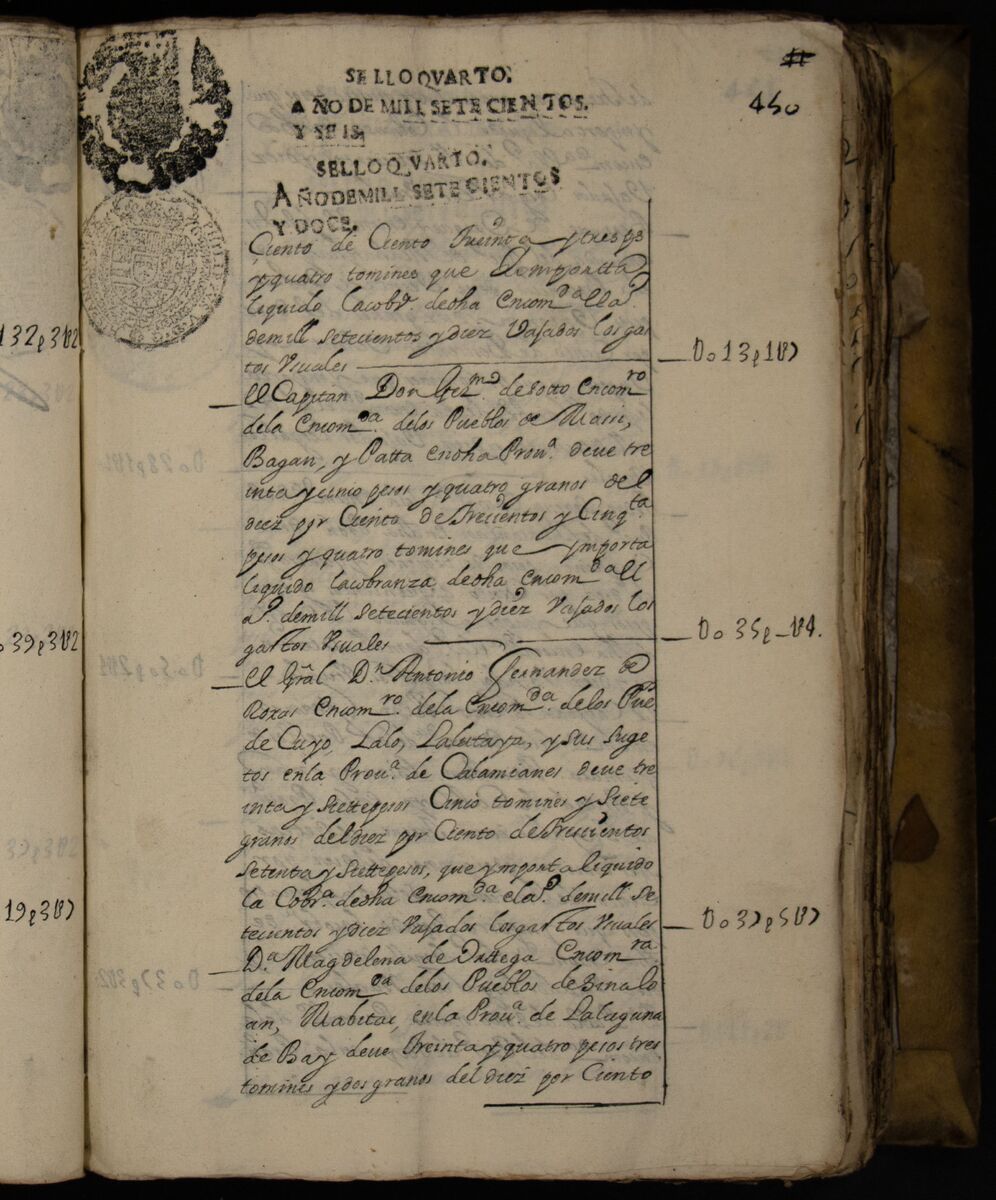 450
SELLO QVARTO.
AÑO DE MILL SETECIENTOS.
Y SEIS,
SELLO QVARTO.
AÑO DE MILL SETECIENTOS
Y DOCE.
Ciento de Ciento treinta y tres ps
y quatro tomines que
liquido lacobr.ª desdha Encom.da ela.º
demill setecientos y diez Vajados los gas
tos Vsuales
U o 13 p 1 U 7
El Capitan Don de sotto Encom.ro
dela Encom.da delos Pueblos de Masi,
Bagan, y Patta endha Prou.ª deve tre
inta y cinco pesos y quatro granos del
diez por Ciento de Trecientos y Cinq.ta
pesos y quatro tomines que ymporta
liquido lacobranza desdha Encom.da el
a.º demill setecientos y diez Vajados los
gastos Vsuales
U o 35 p _ U 4.
El Gral D.n Antonio Fernandez de
Roxas Encom.ro dela Encom.da delos Pue
de Cuyo, Lalo, Lalutaya, y sus suge
tos enla Prou.ª de Calamianes deve tre
inta y siettepesos Cinco tomines y siete
granos deldiez por Ciento de Trecientos
setenta y siettepesos, que ymporta liquido
la Cobr.ª desdha Encom.da ela.º demill se
tecientos y diez Vajados losgastos Vsuales
U o 37 p 5 U 7
D.ª Magdelena de Ortega Encom.ra
dela Encom.da delos Pueblos de Sinalo
an, Mabitac, enla Prou.ª de Lalaguna
de Bay deve Treinta y quatro pesos tres
tomines y dos granos del diez por Ciento
132 p 3 U 2
o 39 p 3 U 2
19 p 3 U 7